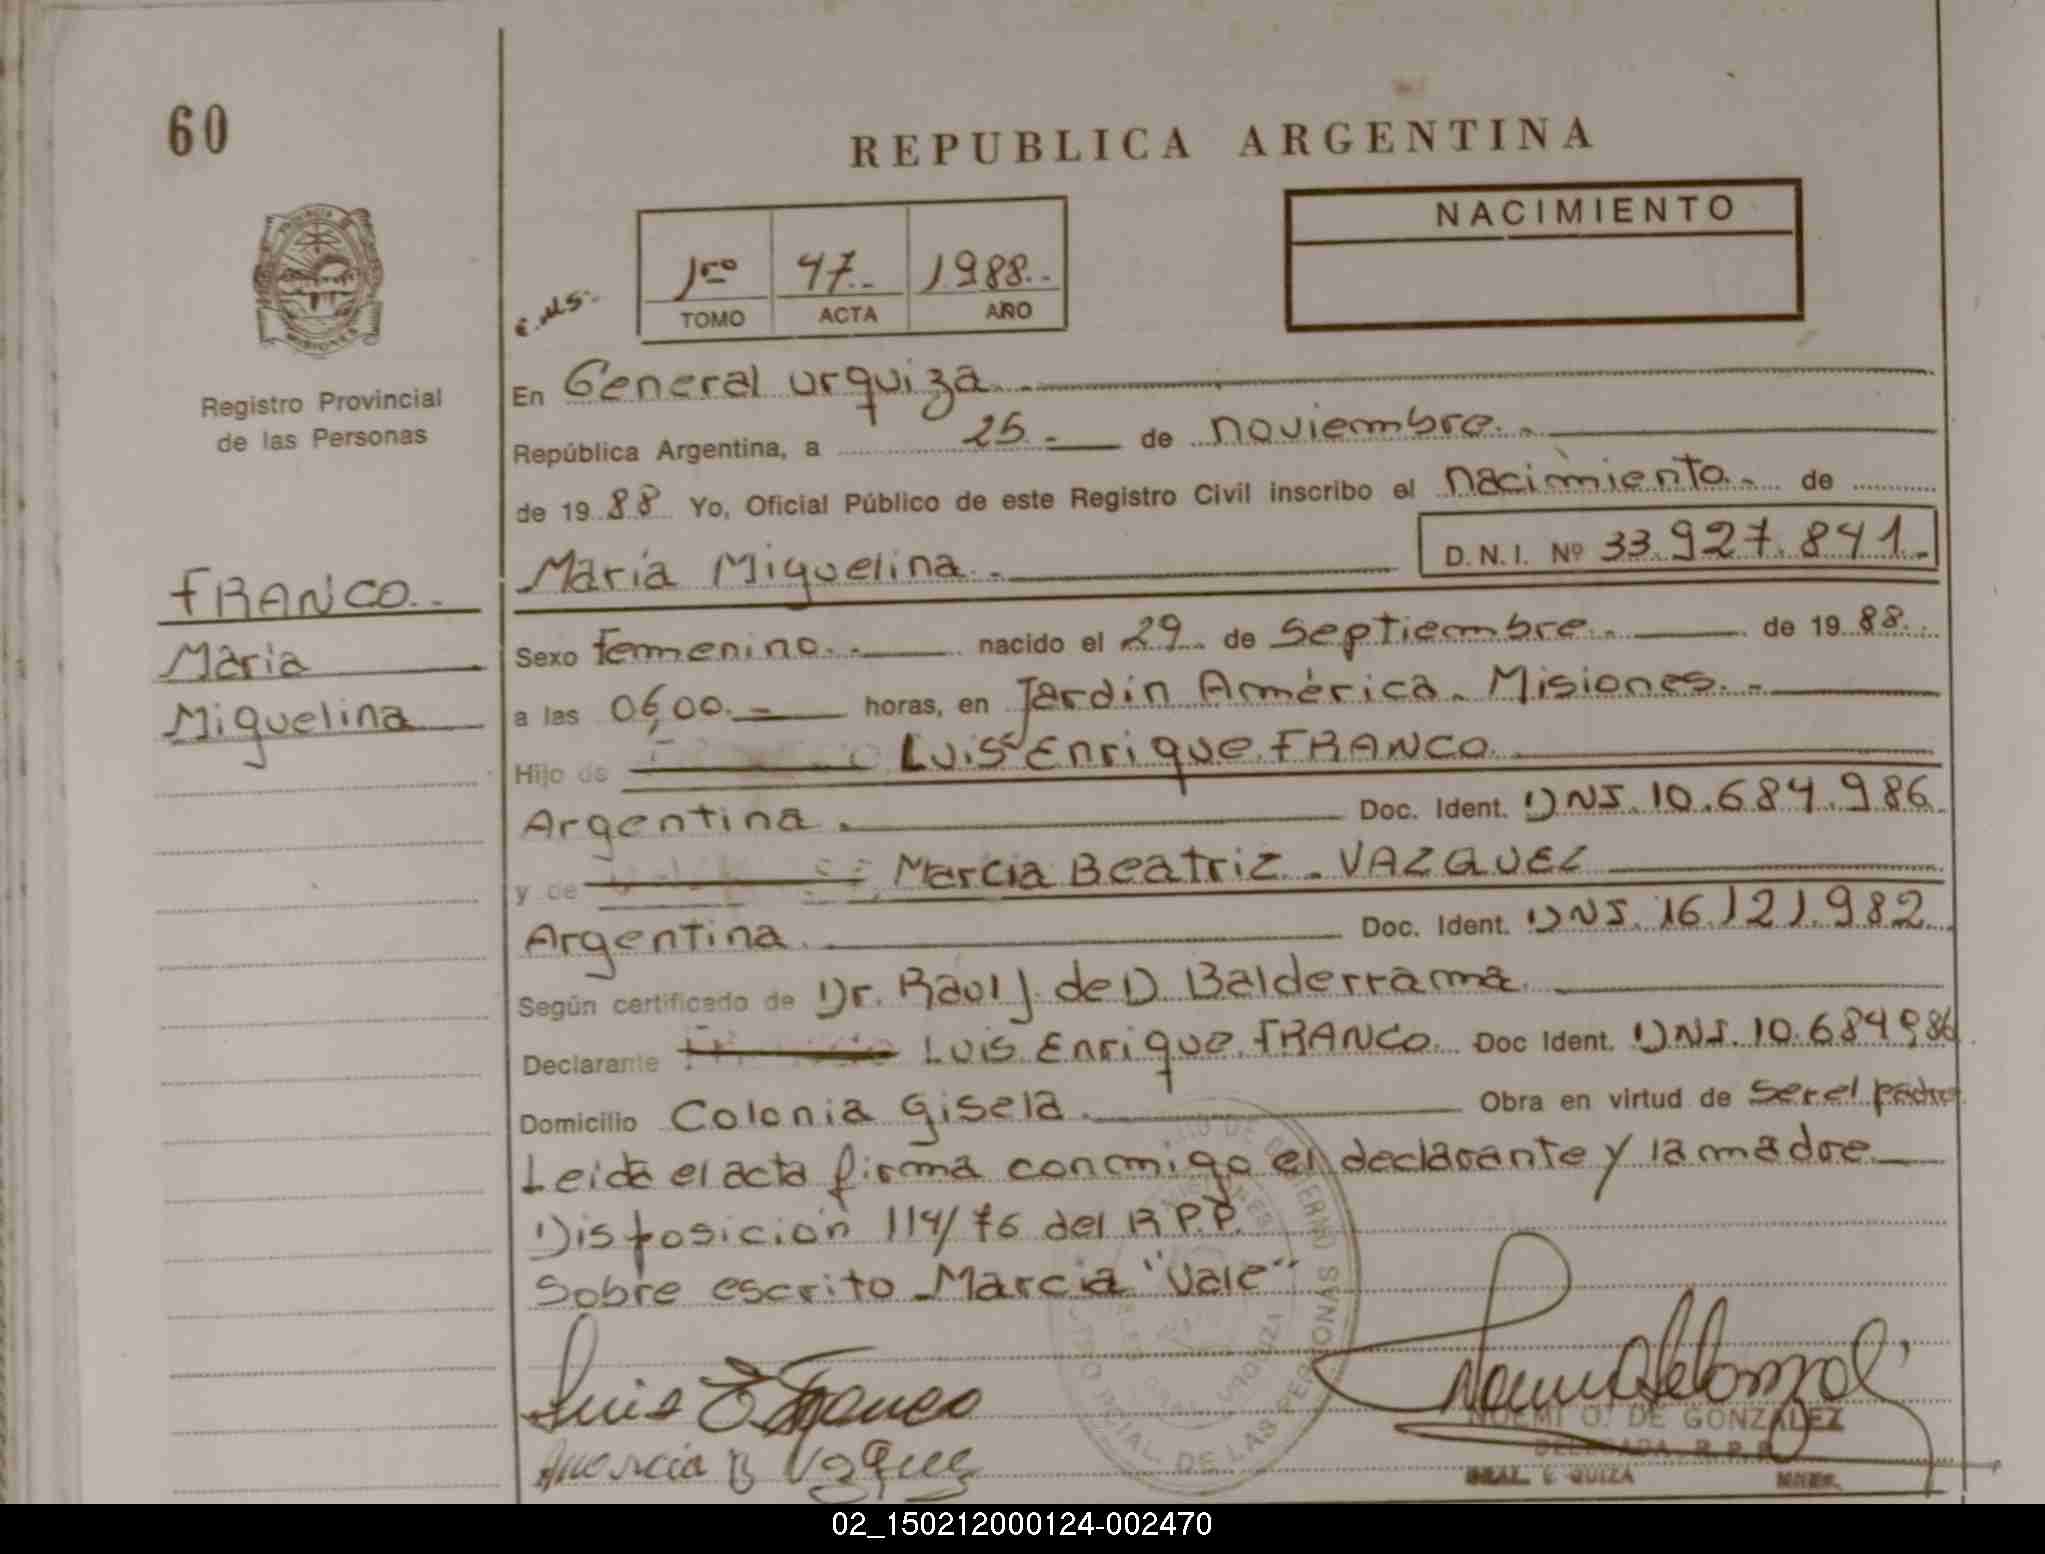 60
REPUBLICA ARGENTINA
NACIMIENTO
1ro 47.- 1988.-
TOMO ACTA AÑO
Registro Provincial
de las Personas
MISIONES
FRANCO.-
María
Miguelina
En General urquiza.-
República Argentina, a 25.- de noviembre.-
de 1988 Yo, Oficial Público de este Registro Civil inscribo el nacimiento.- de
María Miguelina.- D.N.I. Nº 33.927.841.-
Sexo femenino.- nacido el 29.. de septiembre.- de 1988.
a las 06,00.- horas, en Jardín América. Misiones.-
Hijo de Luis Enrique FRANCO
Argentina.- Doc. Ident. DNI. 10.684.986.
y de Marcia Beatriz. VAZQUEZ
Argentina. Doc. Ident. DNI. 16.121.982.
Según certificado de Dr. Raul J. de D. Balderrama.
Declarante Luis Enrique FRANCO Doc Ident. DNI. 10.684986
Domicilio Colonia gisela. Obra en virtud de ser el padre
Leida el acta firma conmigo el declarante y la madre
Disposición 114/76 del R.P.P.
Sobre escrito Marcia "Vale"
Luis E Franco
Marcia B Vazquez
NOEMI O. DE GONZALEZ
DELEGADA R.P.P.
GRAL. URQUIZA
DE LAS PERSONAS
02_150212000124-002470